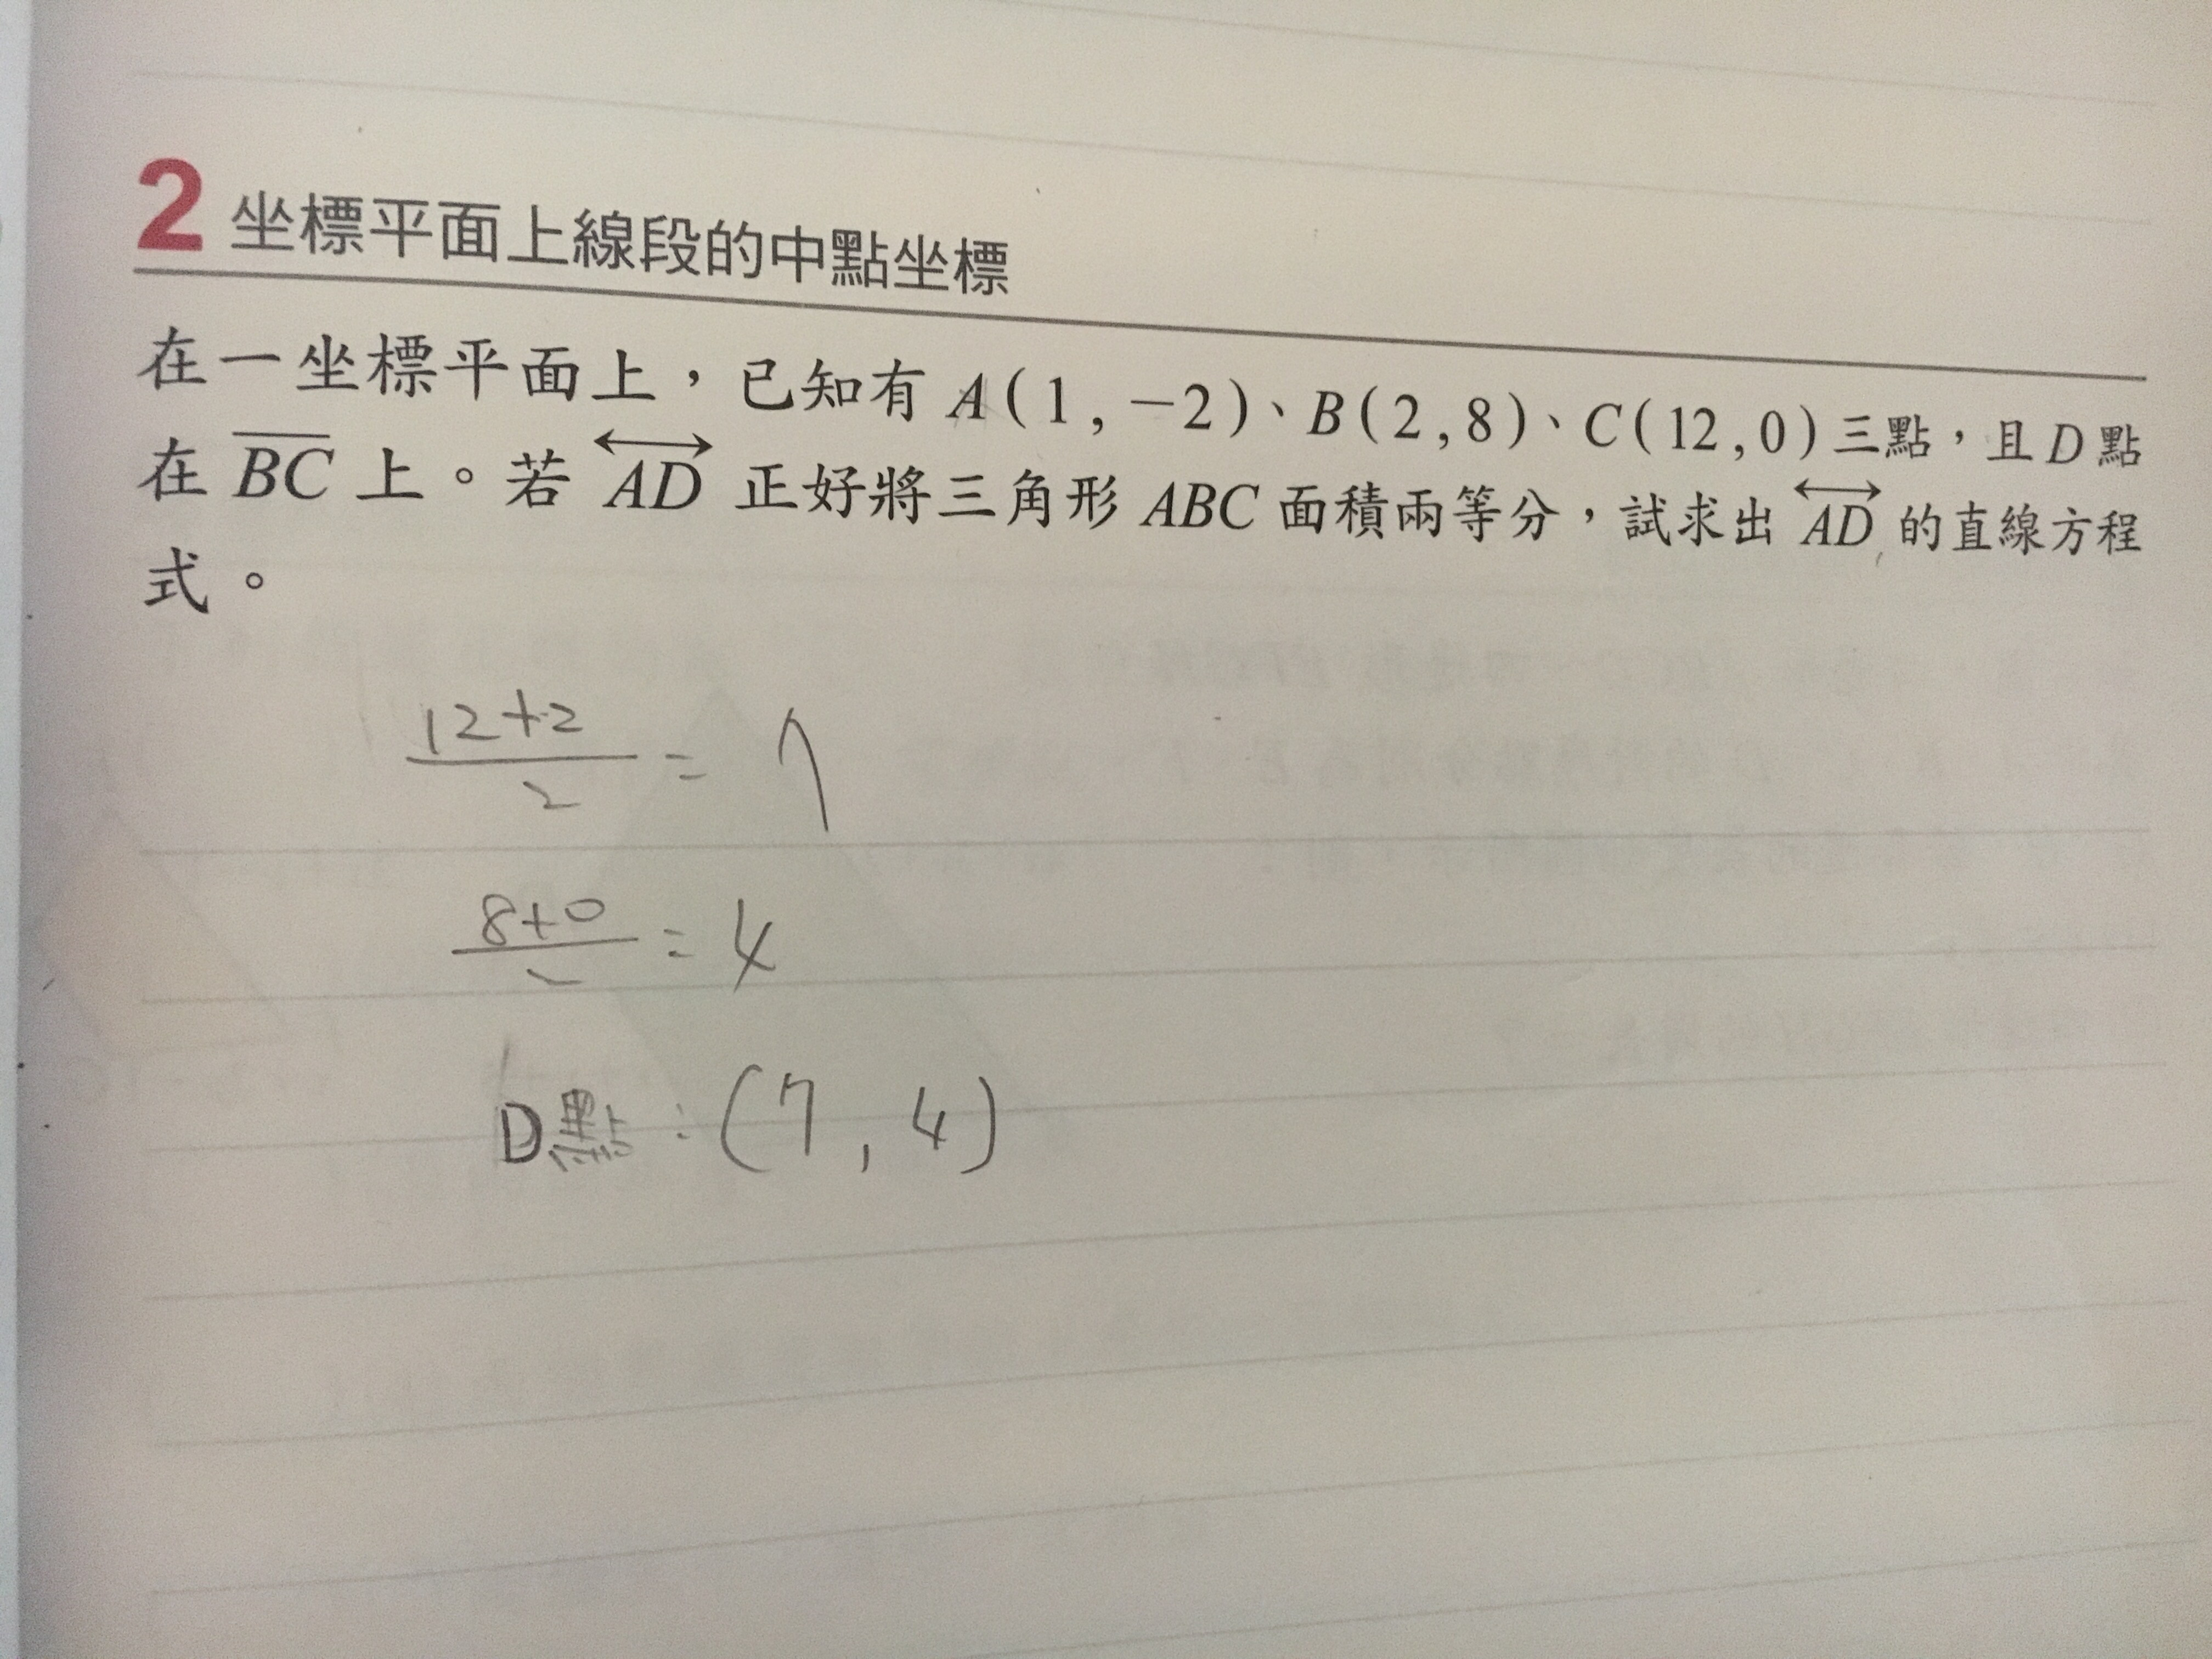 2 坐標平面上線段的中點坐標
在一坐標平面上，已知有 A(1,−2)、B(2,8)、C(12,0)三點，且D點
在 BC 上。若 AD 正好將三角形 ABC 面積兩等分，試求出 AD 的直線方程
式。
12+2
2
= 7
8+0
2
= 4
D點：(7,4)